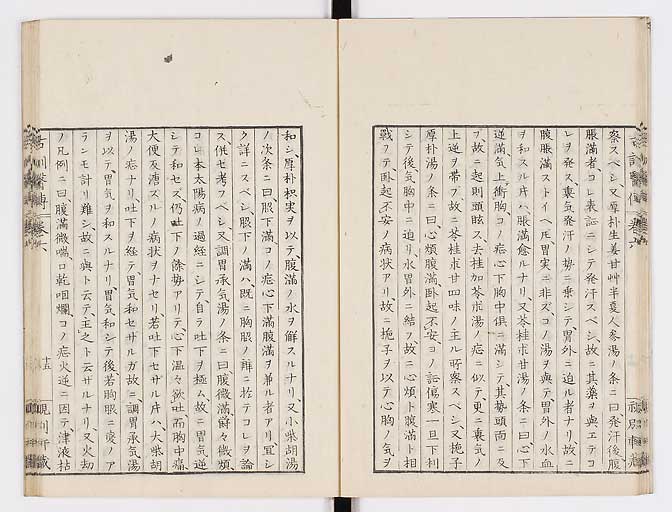 察スベシ、又厚朴生姜甘艸半夏人參湯ノ条ニ曰発汗後腹
脹滿者コレ表証ニシテ発汗スベシ、故ニ其薬ヲ與エテコ
レヲ発ス、裏気発汗ノ勢ニ乗シテ、胃外ニ迫ル者ナリ、故ニ
腹脹滿ストイヘ𪜈胃実ニ非ズ、コノ湯ヲ與テ、胃外ノ水血
ヲ和スル片ハ、脹滿愈ルナリ、又苓桂朮甘湯ノ条ニ曰心下
逆滿気上衝胸、コノ症心下胸中俱ニ滿シテ、其勢頭面ニ及
フ、故ニ起則頭眩ス、去桂加苓朮湯ノ症ニ似テ更ニ裏気ノ
上逆ヲ帶フ、故ニ苓桂朮甘四味ノ主ル所察スベシ、又梔子
厚朴湯ノ条ニ曰、心煩腹滿臥起不安、コノ証傷寒一旦下利
シテ後気胸中ニ迫リ、水胃外ニ結フ、故ニ心煩ト腹滿ト相
戰フテ、臥起不安ノ病状アリ、故ニ梔子ヲ以テ心胸ノ気ヲ
和シ、厚朴枳実ヲ以テ、腹滿ノ水ヲ解スルナリ、又小柴胡湯
ノ次条ニ曰服下滿コノ症心下滿腹滿ヲ兼ル者アリ、宜シ
ク詳ニスベシ、服下ノ滿ハ、既ニ胸服ノ辨ニ於テコレヲ論
ス、供セ考フベシ、又調胃承気湯ノ条ニ曰腹微滿欝々微煩
コレ本太陽病ノ過経ニシテ、自ラ吐下ヲ極ム、故ニ胃気逆
シテ和セズ、仍吐下ノ餘勢アリテ、心下溫々欲吐而胸中痛
大便反溏ズルノ病状ヲナセリ、若吐下セザル片ハ、大柴胡
湯ノ症ナリ、吐下ヲ経テ胃気和セザルガ故ニ、調胃承気湯
ヲ以テ、胃気ヲ和スルナリ、胃気和シテ後若胸服ニ変ノア
ランモ計リ難シ、故ニ與ト云テ、主之ト云ザルナリ、又火劫
ノ凡例ニ曰、腹滿微喘、口乾咽爛、コノ症火逆ニ因テ、津液枯